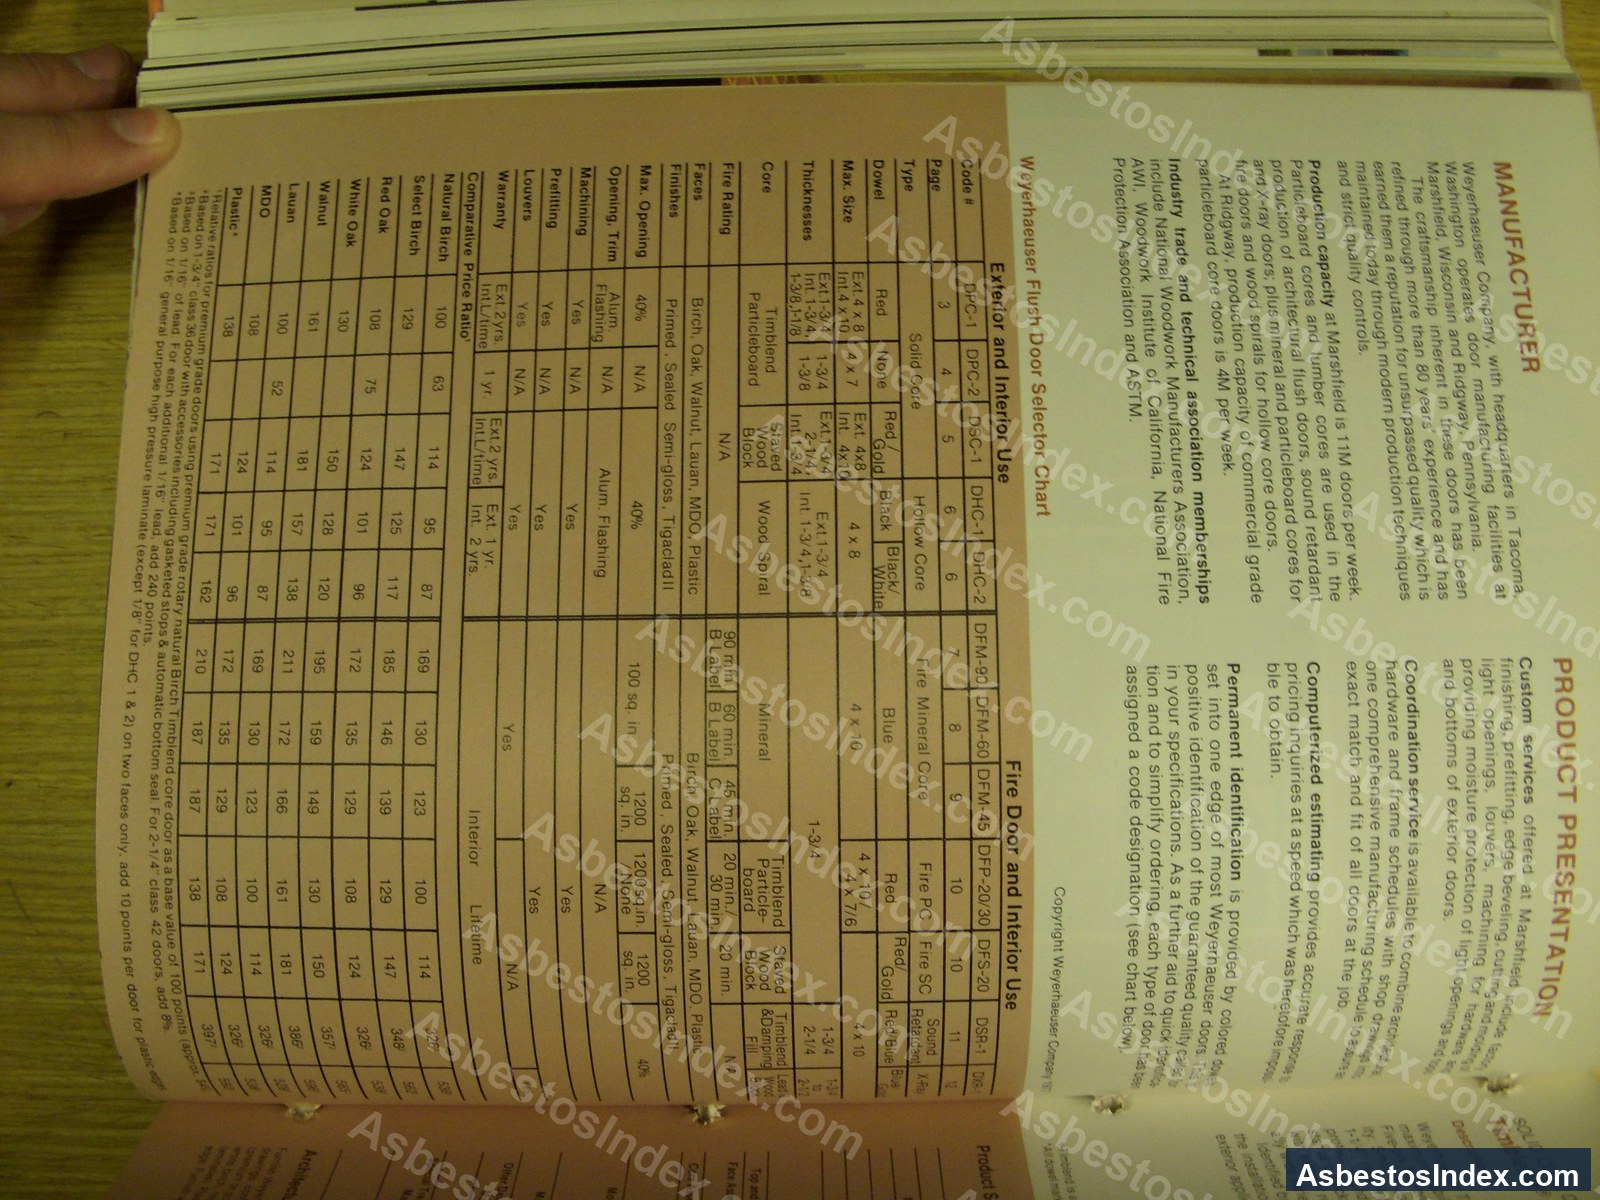 MANUFACTURER
Weyerhaeuser Company, with headquarters in Tacoma,
Washington operates door manufacturing facilities at
Marshfield, Wisconsin and Ridgway, Pennsylvania.
The craftsmanship inherent in these doors has been
refined through more than 80 years' experience and has
earned them a reputation for unsurpassed quality which is
maintained today through modern production techniques
and strict quality controls.
Production capacity at Marshfield is 11M doors per week.
Particleboard cores and lumber cores are used in the
production of architectural flush doors, sound retardant
and x-ray doors; plus mineral and particleboard cores for
fire doors and wood spirals for hollow core doors.
At Ridgway, production capacity of commercial grade
particleboard core doors is 4M per week.
Industry trade and technical association memberships
include National Woodwork Manufacturers Association,
AWI, Woodwork Institute of California, National Fire
Protection Association and ASTM.
PRODUCT PRESENTATION
Custom services offered at Marshfield include
finishing, prefitting, edge beveling, cutting and
light openings, louvers, machining for hardware
providing moisture protection of light openings and
and bottoms of exterior doors.
Coordination service is available to combine
hardware and frame schedules with shop drawings
one comprehensive manufacturing schedule to assure
exact match and fit of all doors at the job.
Computerized estimating provides accurate response
pricing inquiries at a speed which was heretofore
ble to obtain.
Permanent identification is provided by colored
set into one edge of most Weyerhaeuser doors.
positive identification of the guaranteed quality
in your specifications. As a further aid to quick
tion and to simplify ordering, each type of door has been
assigned a code designation (see chart below).
Copyright Weyerhaeuser Company
Weyerhaeuser Flush Door Selector Chart
Exterior and Interior Use Fire Door and Interior Use
Code # DPC-1 DPC-2 DSC-1 DHC-1 DHC-2 DFM-90 DFM-60 DFM-45 DFP-20/30 DFS-20 DSR-1
Page 3 4 5 6 6 7 8 9 10 10 11 12
Type Solid Core Hollow Core Fire Mineral Core Fire PC Fire SC Sound Retardant X-Ray
Dowel Red None Red/Gold Black Black/White Blue Red Red/Gold Red/Blue Blue
Max. Size Ext. 4 x 8 Int. 4 x 10 4 x 7 Ext. 4x8 Int. 4x10 4 x 8 4 x 10 4 x 10/ 4 x 7/6 4 x 10
Thicknesses Ext. 1-3/4 Int. 1-3/4, 1-3/8, 1-1/8 1-3/4 1-3/8 Ext. 1-3/4 2-1/4, Int. 1-3/4 Ext. 1-3/4 Int. 1-3/4, 1-3/8 1-3/4 1-3/4 2-1/4
Core Timblend Particleboard Staved Wood Block Wood Spiral Mineral Timblend Particle-board Staved Wood Block Timblend & Damping Fill
Fire Rating N/A 90 min. B Label 60 min. B Label 45 min. C Label 20 min./ 30 min. 20 min. N/A
Faces Birch, Oak, Walnut, Lauan, MDO, Plastic Birch, Oak, Walnut, Lauan, MDO, Plastic
Finishes Primed, Sealed, Semi-gloss, Tigaclad II Primed, Sealed, Semi-gloss, Tigaclad II
Max. Opening 40% N/A 40% 100 sq. in. 1200 sq. in. 1200 sq. in. /None 1200 sq. in. 40%
Opening, Trim Alum. Flashing N/A Alum. Flashing N/A
Machining Yes N/A Yes Yes
Prefitting Yes N/A Yes Yes
Louvers Yes N/A Yes Yes N/A
Warranty Ext. 2 yrs. Int. L/time 1 yr. Ext. 2 yrs. Int. L/time Ext. 1 yr. Int. 2 yrs. Interior Lifetime
Comparative Price Ratio¹
Natural Birch 100 63 114 95 87 169 130 123 100 114 326²
Select Birch 129 147 125 117 185 146 139 129 147 348²
Red Oak 108 75 124 101 96 172 135 129 108 124 326²
White Oak 130 150 128 120 195 159 149 130 150 357²
Walnut 161 181 157 138 211 172 166 161 181 386²
Lauan 100 52 114 95 87 169 130 123 100 114 326²
MDO 108 124 101 96 172 135 129 108 124 326²
Plastic⁴ 138 171 171 162 210 187 187 138 171 397²
¹Relative ratios for premium grade doors using premium grade rotary natural Birch Timblend core door as a base value of 100 points
²Based on 1-3/4" class 36 door with accessories including gasketed stops & automatic bottom seal. For 2-1/4" class 42 doors, add 8%.
³Based on 1/16" of lead. For each additional 1/16" lead, add 240 points.
⁴Based on 1/16" general purpose high pressure laminate (except 1/8" for DHC 1 & 2) on two faces only, add 10 points per door for plastic edge
AsbestosIndex.com